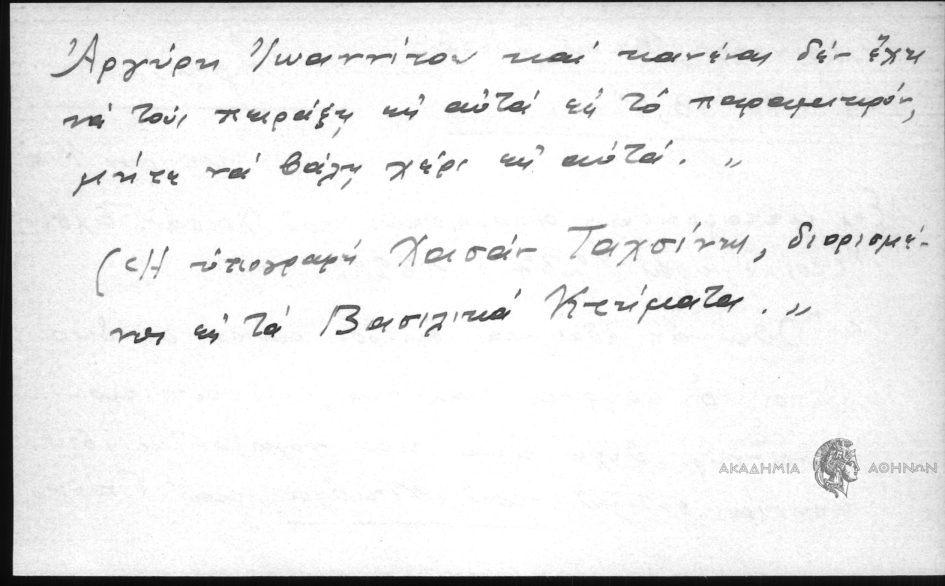 Ἀργύρη Ἰωαννίτου καί κανένας δέν ἔχει
νά τούς πειράξῃ εἰς αὐτά εἰς τό παραμικρόν,
μήτε νά βάλῃ χέρι εἰς αὐτά."
(Ἡ ὑπογραφή Χασάν Ταχσίνης, διορισμέ-
νος εἰς τά Βασιλικά Κτήματα."
ΑΚΑΔΗΜΙΑ ΑΘΗΝΩΝ